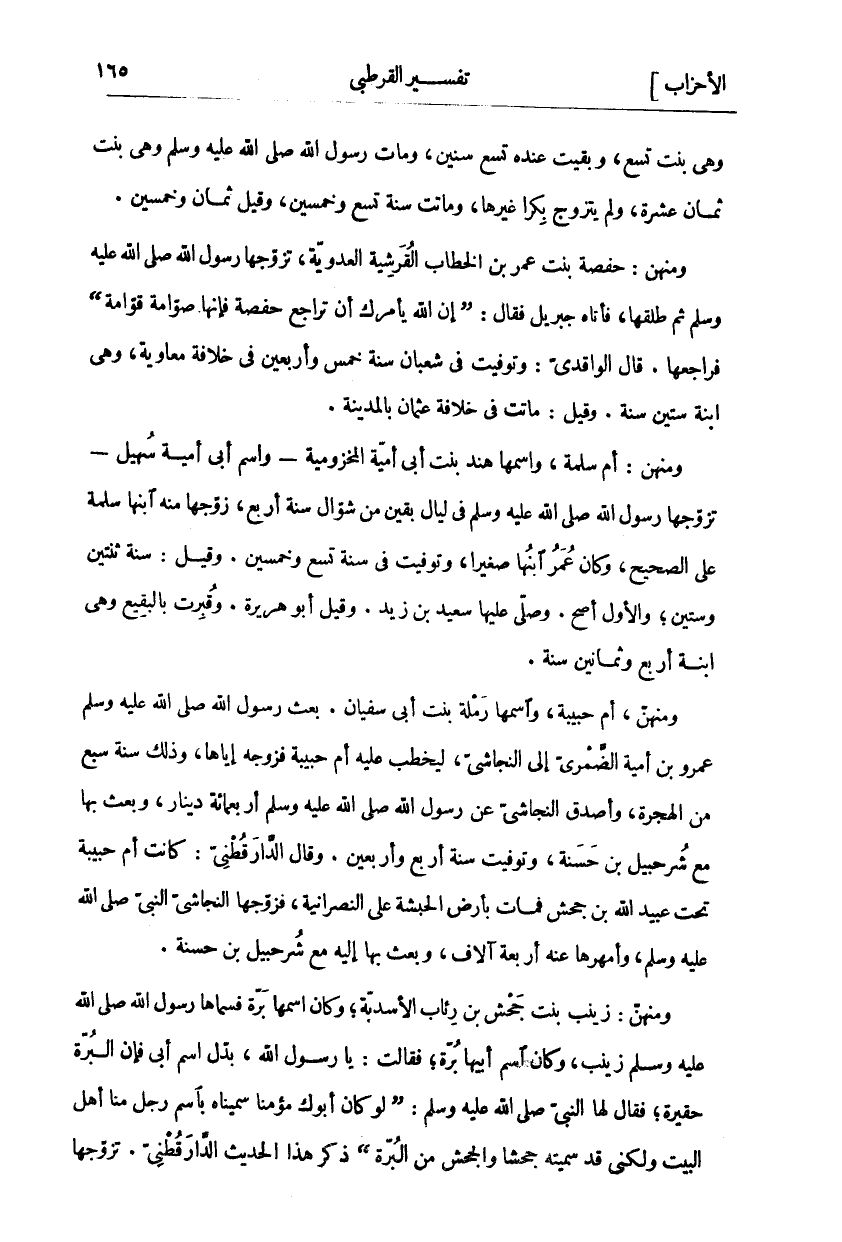 الأحزاب ] تفســـير القرطبى ١٦٥
وهى بنت تسع، وبقيت عنده تسع سنين، ومات رسول الله صلى الله عليه وسلم وهى بنت
ثمـان عشرة، ولم يتزوج بِكرا غيرها، وماتت سنة تسع وخمسين، وقيل ثمـان وخمسين .
ومنهن : حفصة بنت عمر بن الخطاب القُرَشِية العدويّة، تزوّجها رسول الله صلى الله عليه
وسلم ثم طلقها، فأتاه جبريل فقال : ” إن الله يأمرك أن تراجع حفصة فإنها صوّامة قوّامة “
فراجعها . قال الواقدىّ : وتوفيت فى شعبان سنة خمس وأربعين فى خلافة معاوية، وهى
ابنة ستين سنة . وقيل : ماتت فى خلافة عثمان بالمدينة .
ومنهن : أم سلمة، واسمها هند بنت أبى أميّة المخزومية – واسم أبى أميـة سُهيل –
تزوّجها رسول الله صلى الله عليه وسلم فى ليال بقين من شوّال سنة أربع، زوّجها منه ٱبنها سلمة
على الصحيح، وكان عُمَرُ ٱبنُها صغيرا، وتوفيت فى سنة تسع وخمسين . وقيـل : سنة ثنتين
وستين؛ والأول أصح . وصلّى عليها سعيد بن زيد . وقيل أبو هريرة . وقُبِرت بالبقيع وهى
ابنـة أربع وثمـانين سنة .
ومنهنّ، أم حبيبة، وٱسمها رَمْلة بنت أبى سفيان . بعث رسول الله صلى الله عليه وسلم
عمرو بن أمية الضَّمْرىّ إلى النجاشىّ، ليخطب عليه أم حبيبة فزوجه إياها، وذلك سنة سبع
من الهجرة، وأصدق النجاشىّ عن رسول الله صلى الله عليه وسلم أربعمائة دينار، وبعث بها
مع شُرحبيل بن حَسَنة، وتوفيت سنة أربع وأربعين . وقال الدَّارَقُطْنِىّ : كانت أم حبيبة
تحت عبيد الله بن جحش فمـات بأرض الحبشة على النصرانية، فزوّجها النجاشىّ النبىّ صلى الله
عليه وسلم، وأمهرها عنه أربعة آلاف، وبعث بها إليه مع شُرحبيل بن حسنة .
ومنهنّ : زينب بنت جَحْش بن رِئاب الأسديّة؛ وكان اسمها بَرّة فسماها رسول الله صلى الله
عليه وسـلم زينب، وكان ٱسم أبيها بُرّة؛ فقالت : يا رسـول الله، بدّل اسم أبى فإن الـبُرّة
حقيرة؛ فقال لها النبىّ صلى الله عليه وسلم : ” لو كان أبوك مؤمنا سميناه بٱسم رجل منا أهل
البيت ولكنى قد سميته جحشا والجحش من البُرّة “ ذكر هذا الحديث الدَّارَقُطْنِىّ . تزوّجها